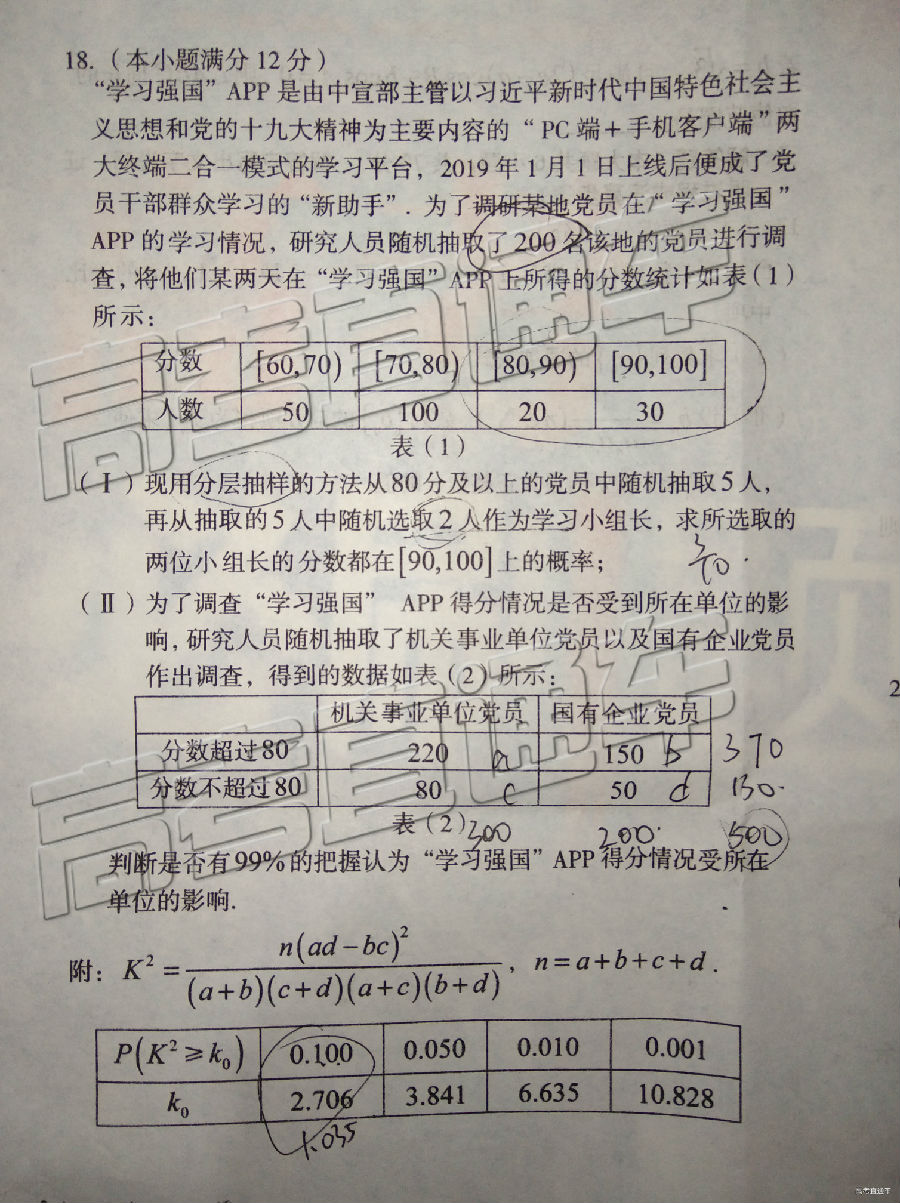 18.（本小题满分12分）
“学习强国”APP是由中宣部主管以习近平新时代中国特色社会主
义思想和党的十九大精神为主要内容的“PC端+手机客户端”两
大终端二合一模式的学习平台，2019年1月1日上线后便成了党
员干部群众学习的“新助手”.为了调研某地党员在“学习强国”
APP的学习情况，研究人员随机抽取了200名该地的党员进行调
查，将他们某两天在“学习强国”APP上所得的分数统计如表（1）
所示：
分数 [60,70) [70,80) [80,90) [90,100]
人数 50 100 20 30
表（1）
（Ⅰ）现用分层抽样的方法从80分及以上的党员中随机抽取5人，
再从抽取的5人中随机选取2人作为学习小组长，求所选取的
两位小组长的分数都在[90,100]上的概率；
3/10
（Ⅱ）为了调查“学习强国” APP得分情况是否受到所在单位的影
响，研究人员随机抽取了机关事业单位党员以及国有企业党员
作出调查，得到的数据如表（2）所示：
机关事业单位党员 国有企业党员
分数超过80 220 a 150 b 370
分数不超过80 80 c 50 d 130
表（2） 300 200 500
判断是否有99%的把握认为“学习强国”APP得分情况受所在
单位的影响.
附：K²=n(ad-bc)²/(a+b)(c+d)(a+c)(b+d)，n=a+b+c+d.
P(K²≥k₀) 0.100 0.050 0.010 0.001
k₀ 2.706 3.841 6.635 10.828
1.035
高考直通车
高考直通车
员
2
高考直通车